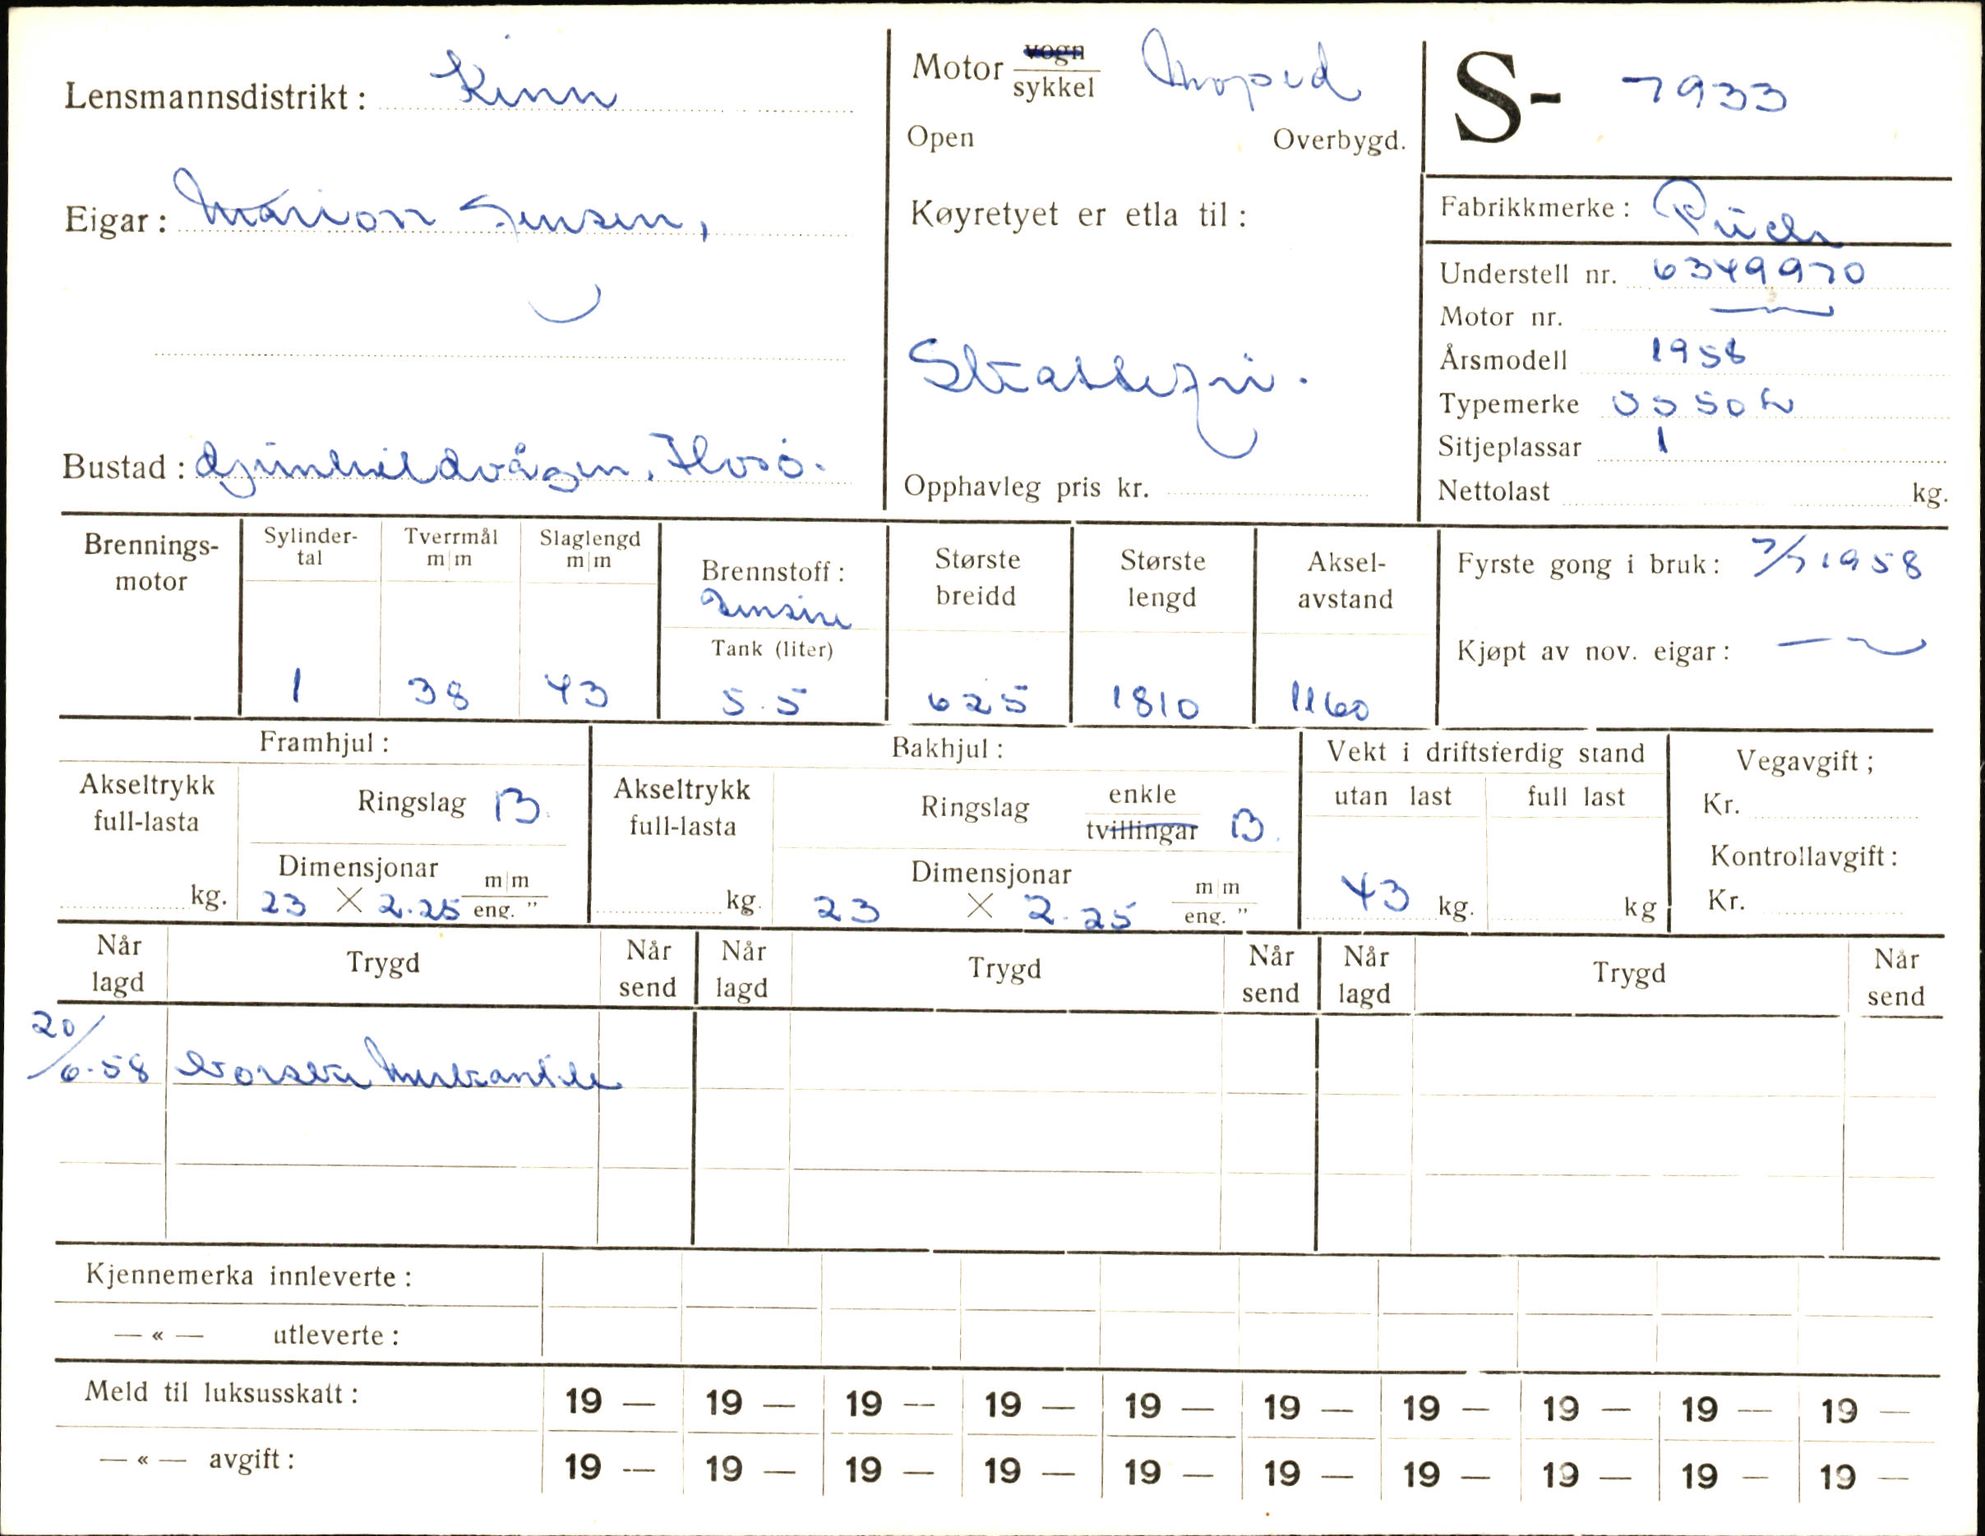 Lensmannsdistrikt: Kinn
Eigar: Marion Jensen,
Bustad:
Motor vogn sykkel Moped
Open Overbygd.
Køyretyet er etla til:
Skattefri.
Opphavleg pris kr.
S- 7933
Fabrikkmerke: Püch
Understell nr. 6349970
Motor nr. —
Årsmodell 1958
Typemerke
Sitjeplassar 1
Nettolast kg.
Brennings-
motor
Sylinder-
tal
1
Tverrmål
m|m
38
Slaglengd
m|m
43
Brennstoff:
Bensin
Tank (liter)
5.5
Største
breidd
625
Største
lengd
1810
Aksel-
avstand
1160
Fyrste gong i bruk: 7/7 1958
Kjøpt av nov. eigar: —
Framhjul:
Akseltrykk
full-lasta
kg.
Ringslag B.
Dimensjonar m|m
23 × 2.25 eng. "
Bakhjul:
Akseltrykk
full-lasta
kg.
Ringslag enkle tvillingar B.
Dimensjonar m|m
23 × 2.25 eng. "
Vekt i driftsferdig stand
utan last full last
43 kg. kg
Vegavgift;
Kr.
Kontrollavgift:
Kr.
Når lagd Trygd Når send Når lagd Trygd Når send Når lagd Trygd Når send
20/6.58 Norske Merkantile
Kjennemerka innleverte:
— « — utleverte:
Meld til luksusskatt: 19 — 19 — 19 — 19 — 19 — 19 — 19 — 19 — 19 — 19 —
— « — avgift: 19 — 19 — 19 — 19 — 19 — 19 — 19 — 19 — 19 — 19 —